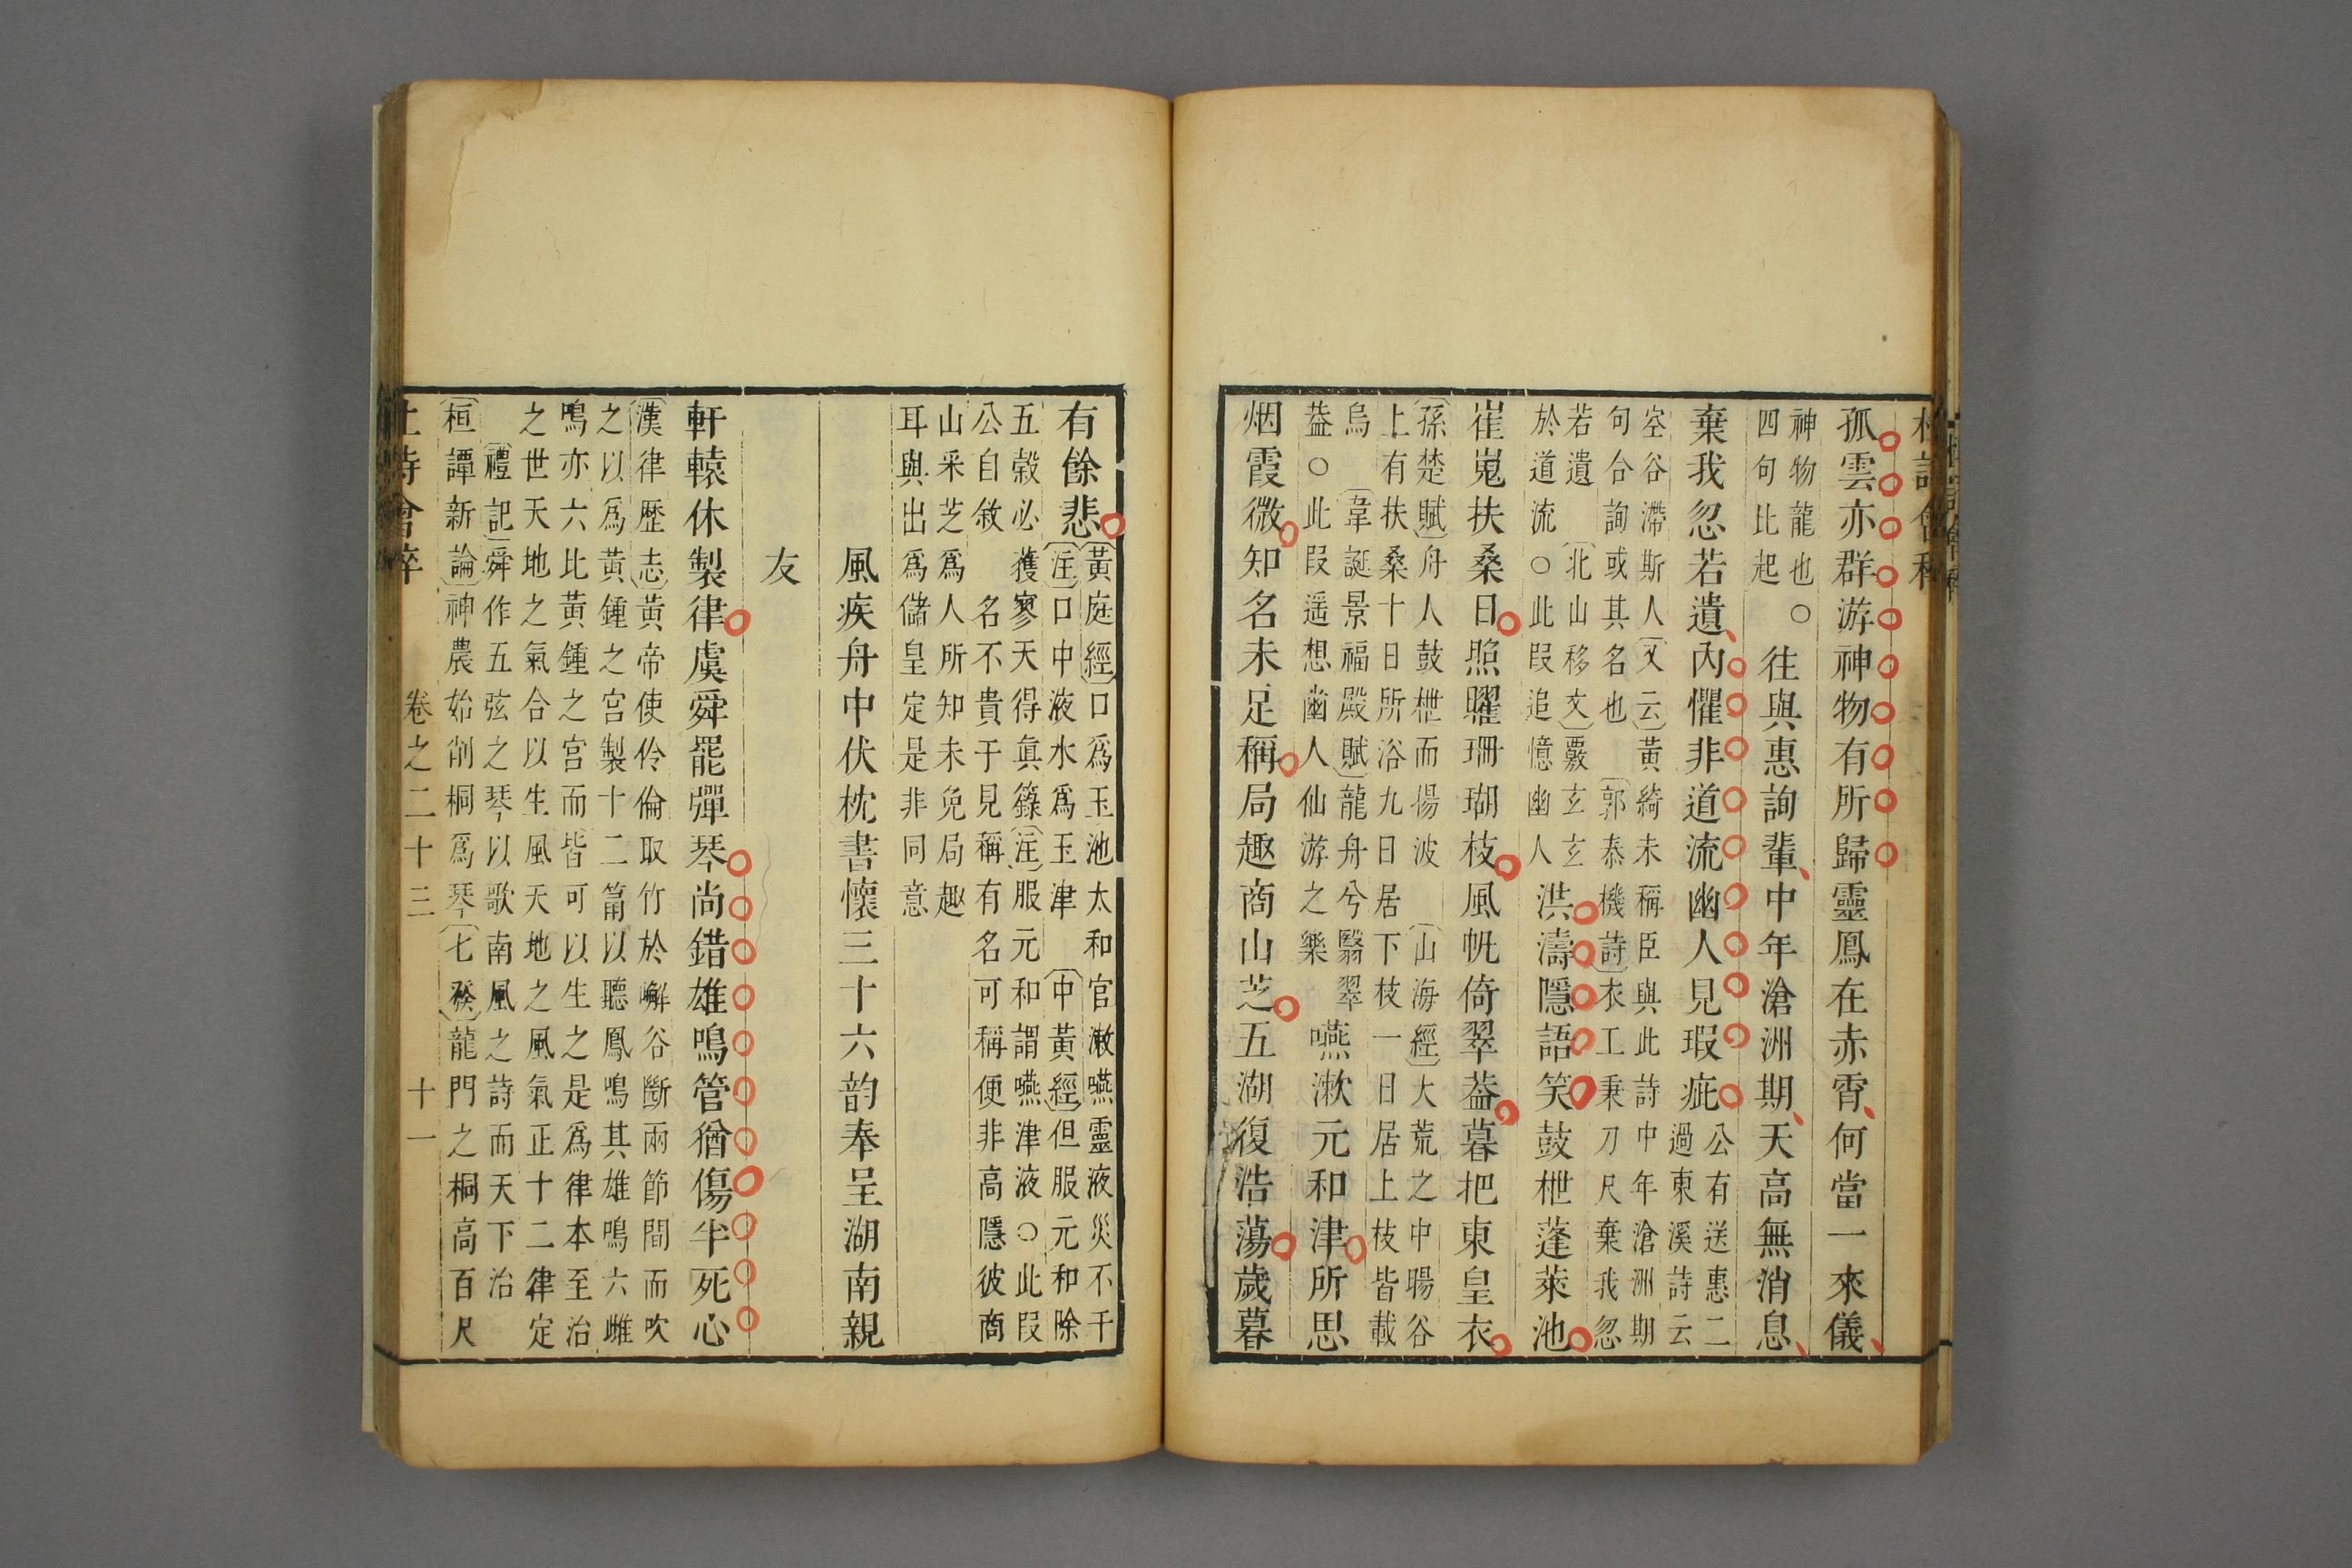 杜詩會稡
孤雲亦群游神物有所歸靈鳳在赤霄何當一來儀
神物龍也○
四句比起
往與惠詢輩中年滄洲期天高無消息
棄我忽若遺內懼非道流幽人見瑕疵
公有送惠二
過東溪詩云
空谷滯斯人〔又云〕黃綺未稱臣與此詩中年滄洲期
句合詢或其名也〔郭泰機詩〕衣工秉刀尺棄我忽
若遺〔北山移文〕覈玄玄
於道流○此段追憶幽人
洪濤隱語笑鼓枻蓬萊池
崔嵬扶桑日照曜珊瑚枝風帆倚翠葢暮把東皇衣
〔孫楚賦〕舟人鼓枻而揚波〔山海經〕大荒之中暘谷
上有扶桑十日所浴九日居下枝一日居上枝皆載
烏〔韋誕景福殿賦〕龍舟兮翳翠
葢○此段遥想幽人仙游之樂
嚥漱元和津所思
烟霞微知名未足稱局趣商山芝五湖復浩蕩歲暮
有餘悲
〔黃庭經〕口爲玉池太和官漱嚥靈液災不干
〔注〕口中液水爲玉津〔中黃經〕但服元和除
五榖必獲寥天得眞籙〔注〕服元和謂嚥津液○此段
公自敘名不貴于見稱有名可稱便非高隱彼商
山采芝爲人所知未免局趣
耳與出爲儲皇定是非同意
風疾舟中伏枕書懷三十六韵奉呈湖南親
友
軒轅休製律虞舜罷彈琴尚錯雄鳴管猶傷半死心
〔漢律歷志〕黃帝使伶倫取竹於嶰谷斷兩節間而吹
之以爲黃鍾之宮製十二筩以聽鳳鳴其雄鳴六雌
鳴亦六比黃鍾之宮而皆可以生之是爲律本至治
之世天地之氣合以生風天地之風氣正十二律定
〔禮記〕舜作五弦之琴以歌南風之詩而天下治
〔桓譚新論〕神農始削桐爲琴〔七發〕龍門之桐高百尺
杜詩會稡 卷之二十三 十一